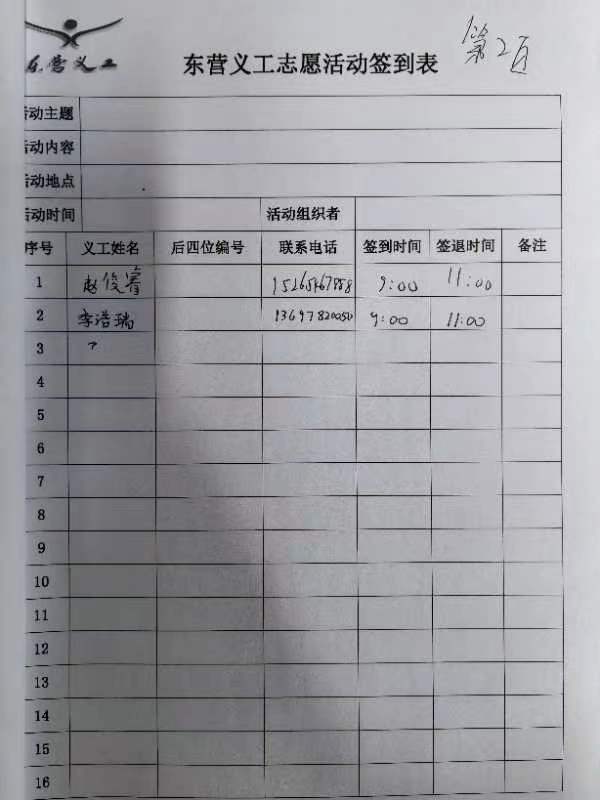 东营义工
东营义工志愿活动签到表 第2页
活动主题
活动内容
活动地点
活动时间 活动组织者
序号 义工姓名 后四位编号 联系电话 签到时间 签退时间 备注
1 赵俊睿 9:00 11:00
2 李浩瑞 13697820050 9:00 11:00
3
4
5
6
7
8
9
10
11
12
13
14
15
16